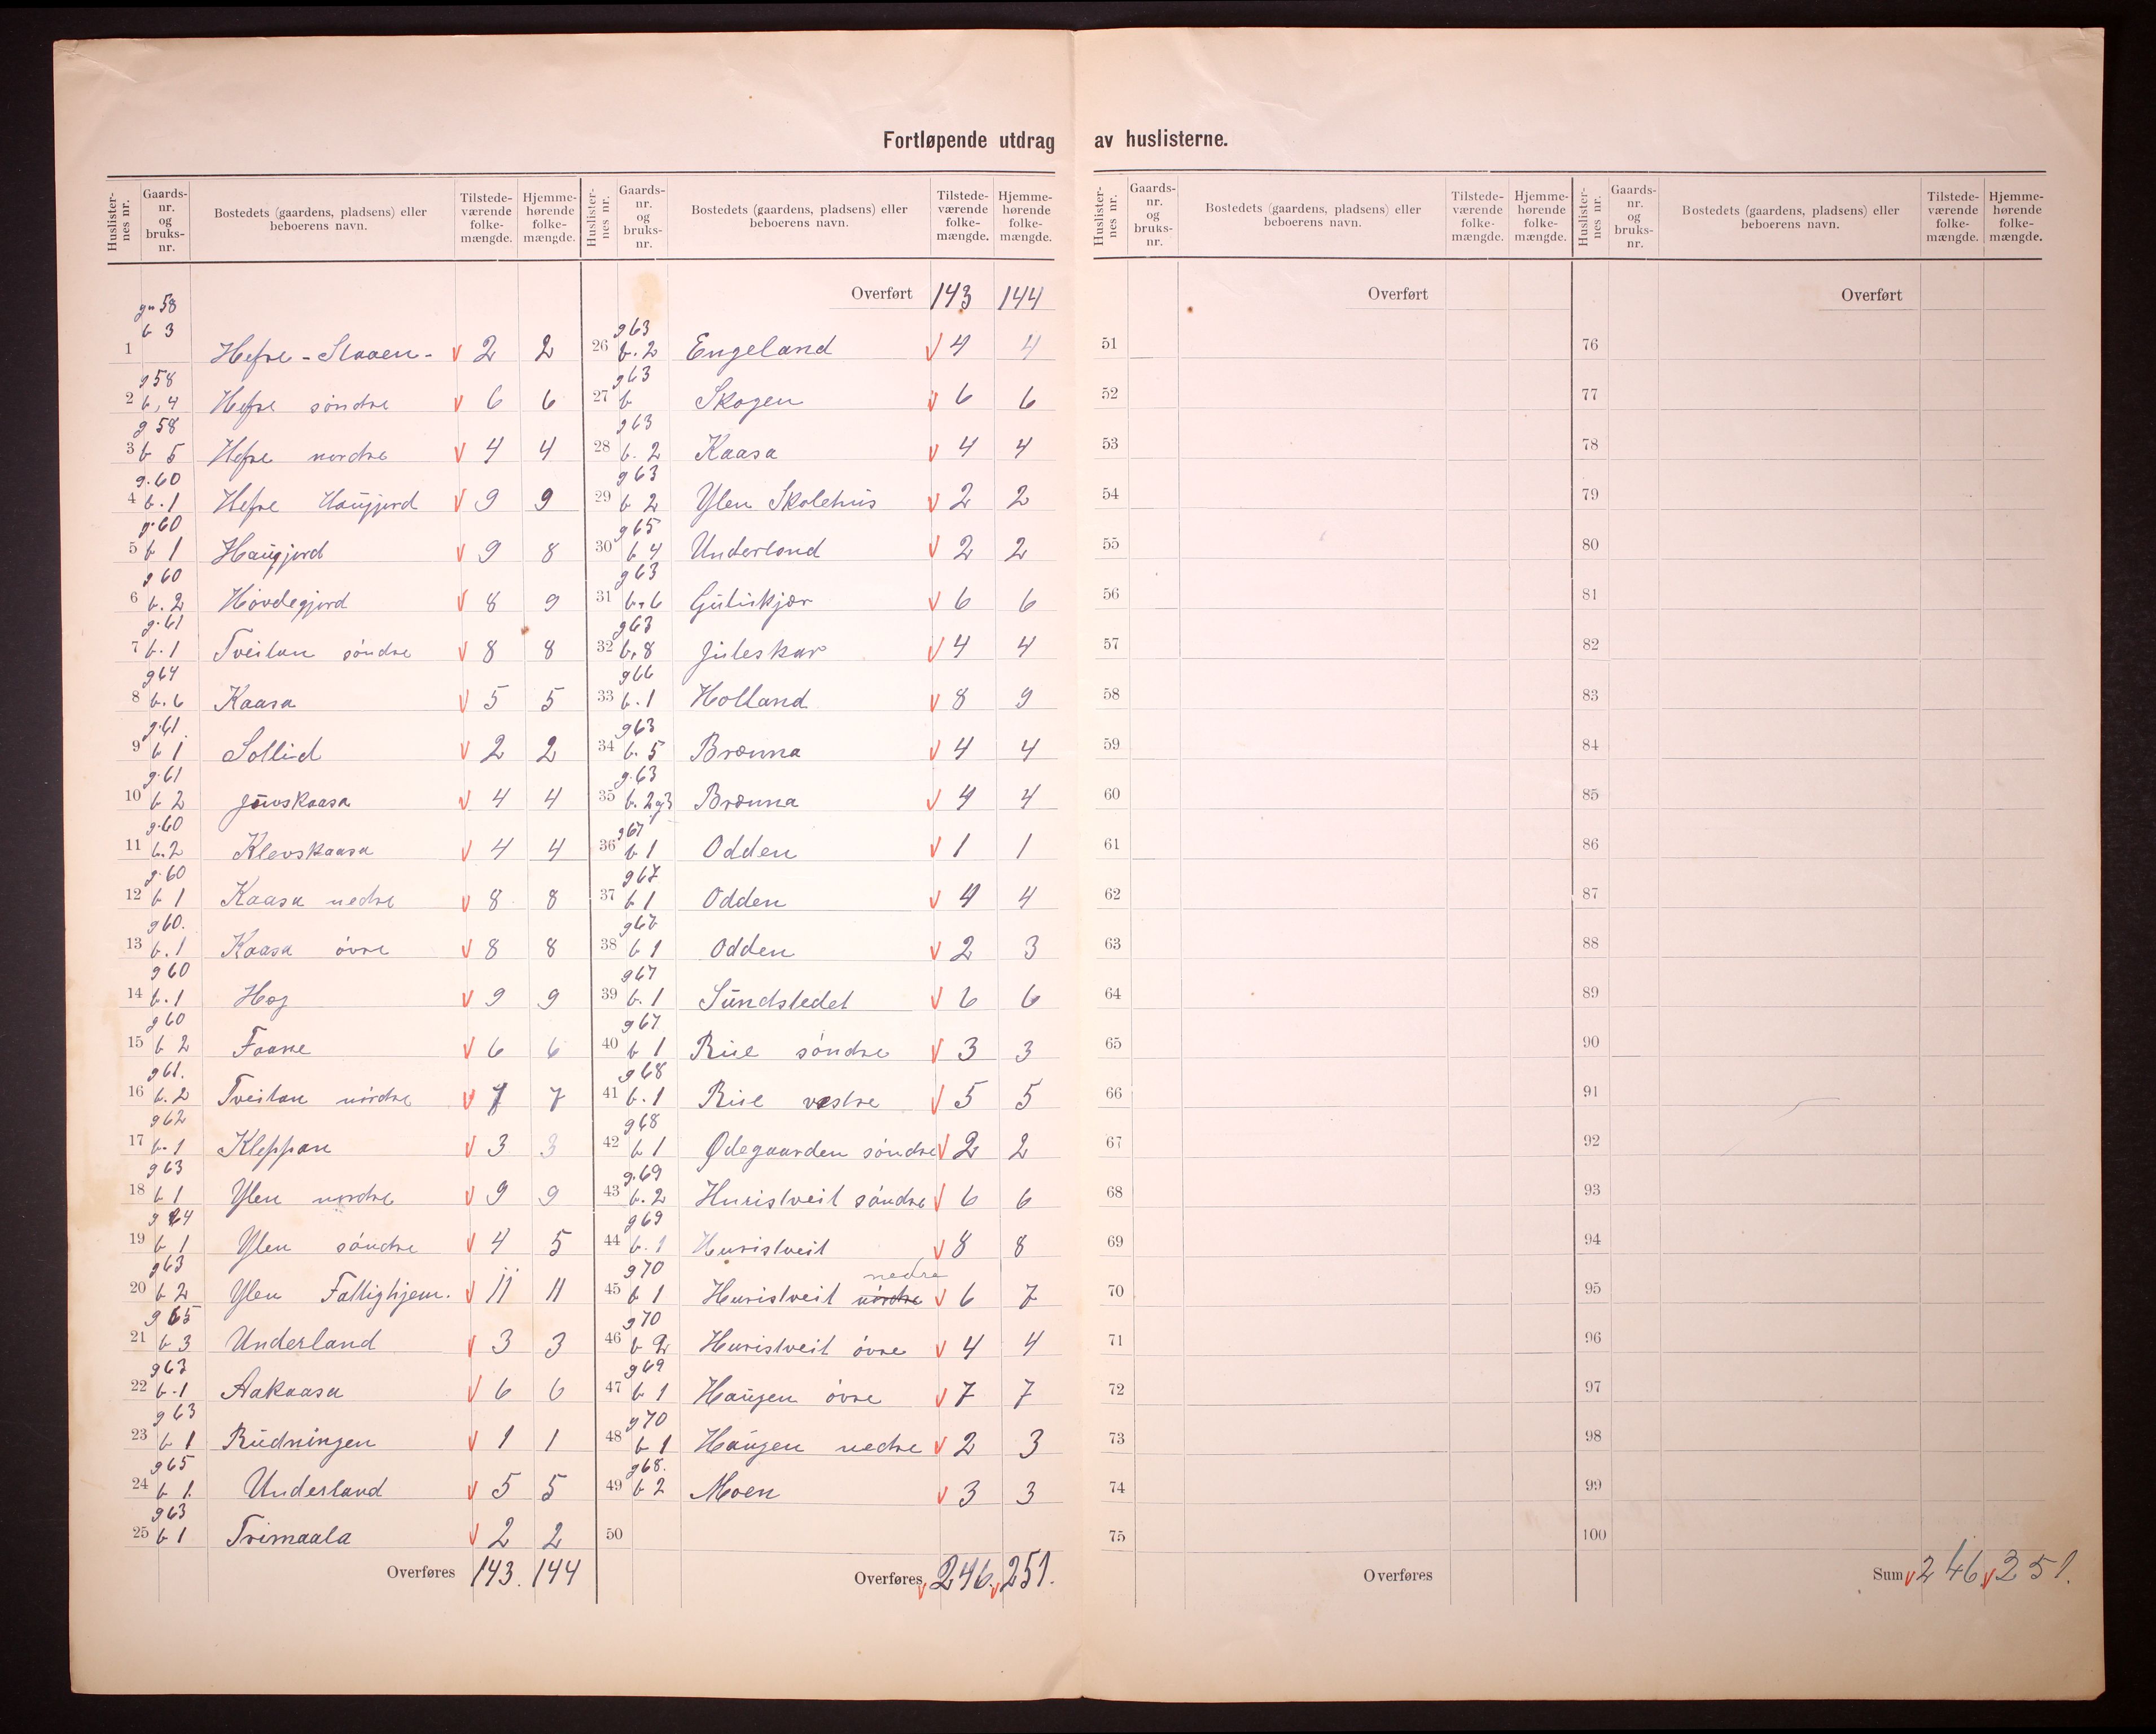 Fortløpende utdrag av huslisterne.
Huslister-nes nr. Gaards-nr. og bruks-nr. Bostedets (gaardens, pladsens) eller beboerens navn. Tilstede-værende folke-mængde. Hjemme-hørende folke-mængde.
gn 58
b 3
1 Hefre-Slaaen- v 2 2
g 58
2 b, 4 Hefre søndre v 6 6
g 58
3 b 5 Hefre nordre v 4 4
g. 60
4 b. 1 Hefre Haugjord v 9 9
g. 60
5 b 1 Haugjord v 9 8
g 60
6 b. 2 Hovdegjord v 8 9
g. 61
7 b. 1 Tveitan søndre v 8 8
g 64
8 b. 6 Kaasa v 5 5
g. 61.
9 b 1 Sollid v 2 2
g. 61
10 b 2 v 4 4
g. 60
11 b. 2 Klevskaasa v 4 4
g. 60
12 b 1 Kaasa nedre v 8 8
g 60.
13 b. 1 Kaasa øvre v 8 8
g 60
14 b. 1 Hog v 9 9
g 60
15 b 2 v 6 6
g 61.
16 b. 2 Tveitan nørdre v 7 7
g 62
17 b. 1 Kleppan v 3 3
g 63
18 b 1 Ylen nordre v 9 9
g 64
19 b 1 Ylen søndre v 4 5
g 63
20 b 2 Ylen Fattighjem. v 11 11
g 65
21 b 3 Underland v 3 3
g 63
22 b. 1 Aakaasa v 6 6
g 63
23 b 1 Rudningen v 1 1
g 65
24 b 1 Underland v 5 5
g 63
25 b 1 Trimaala v 2 2
Overføres 143. 144
Huslister-nes nr. Gaards-nr. og bruks-nr. Bostedets (gaardens, pladsens) eller beboerens navn. Tilstede-værende folke-mængde. Hjemme-hørende folke-mængde.
Overført 143 144
g 63
26 b. 2 Engeland v 4 4
g 63
27 b Skogen v 6 6
g 63
28 b. 2 Kaasa v 4 4
g 63
29 b 2 Ylen Skolehus v 2 2
g 65
30 b 4 Underland v 2 2
g 63
31 b. 6 Guliskjær v 6 6
g 63
32 b. 8 Juleskar v 4 4
g 66
33 b. 1 Holland v 8 9
g 63
34 b. 5 Brænna v 4 4
g. 63
35 b. 2 og 3 Brænna v 4 4
g 67
36 b 1 Odden v 1 1
g 67
37 b 1 Odden v 4 4
g 67
38 b 1 Odden v 2 3
g 67
39 b. 1 Sundstedet v 6 6
g 67
40 b 1 Rue søndre v 3 3
g 68
41 b. 1 Rue vestre v 5 5
g 68
42 b 1 Ødegaarden søndre v 2 2
g. 69
43 b. 2 Huristveit søndre v 6 6
g 69
44 b. 1 Huristveit v 8 8
g 70 nedre
45 b 1 Huristveit nørdre v 6 7
g 70
46 b 2 Huristveit øvre v 4 4
g 69
47 b 1 Haugen øvre v 7 7
g 70
48 b 1 Haugen nedre v 2 3
g 68.
49 b 2 Moen v 3 3
50
Overføres v 246. v 251.
Huslister-nes nr. Gaards-nr. og bruks-nr. Bostedets (gaardens, pladsens) eller beboerens navn. Tilstede-værende folke-mængde. Hjemme-hørende folke-mængde.
Overført
51
52
53
54
55
56
57
58
59
60
61
62
63
64
65
66
67
68
69
70
71
72
73
74
75
Overføres
Huslister-nes nr. Gaards-nr. og bruks-nr. Bostedets (gaardens, pladsens) eller beboerens navn. Tilstede-værende folke-mængde. Hjemme-hørende folke-mængde.
Overført
76
77
78
79
80
81
82
83
84
85
86
87
88
89
90
91
92
93
94
95
96
97
98
99
100
Sum v 246 v 251.